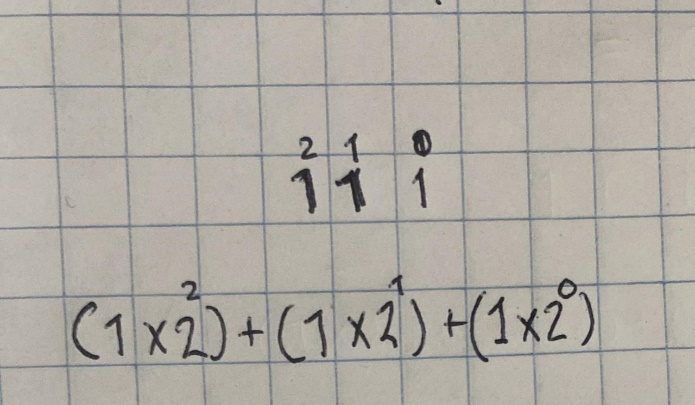 2 1 0
1 1 1
(1×2²)+(1×2¹)+(1×2⁰)